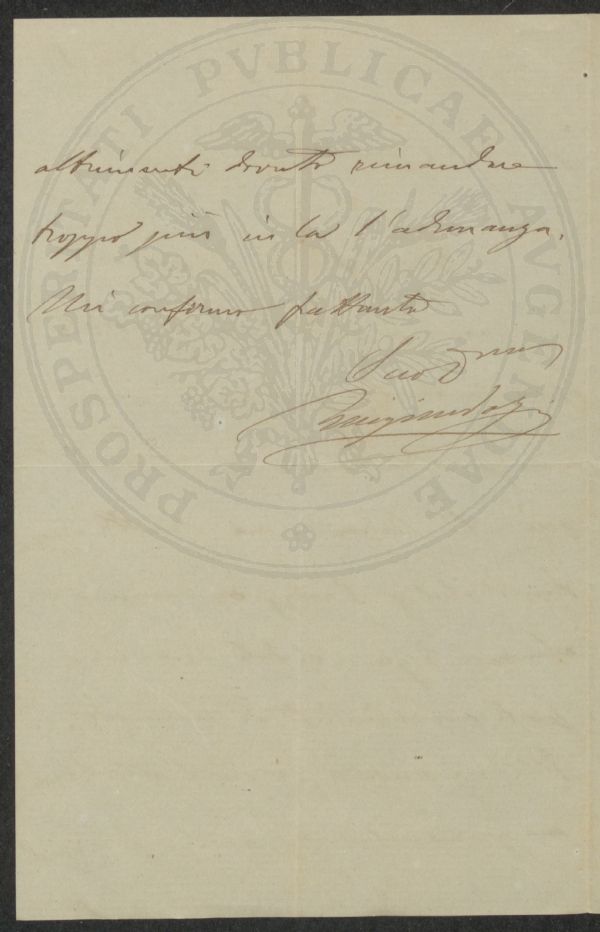 PROSPERITATI PVBLICAE AVGENDAE
altrimenti dovuto rimandare
troppo più in là l'adunanza.
Mi confermo frattanto
Suo
Luigi